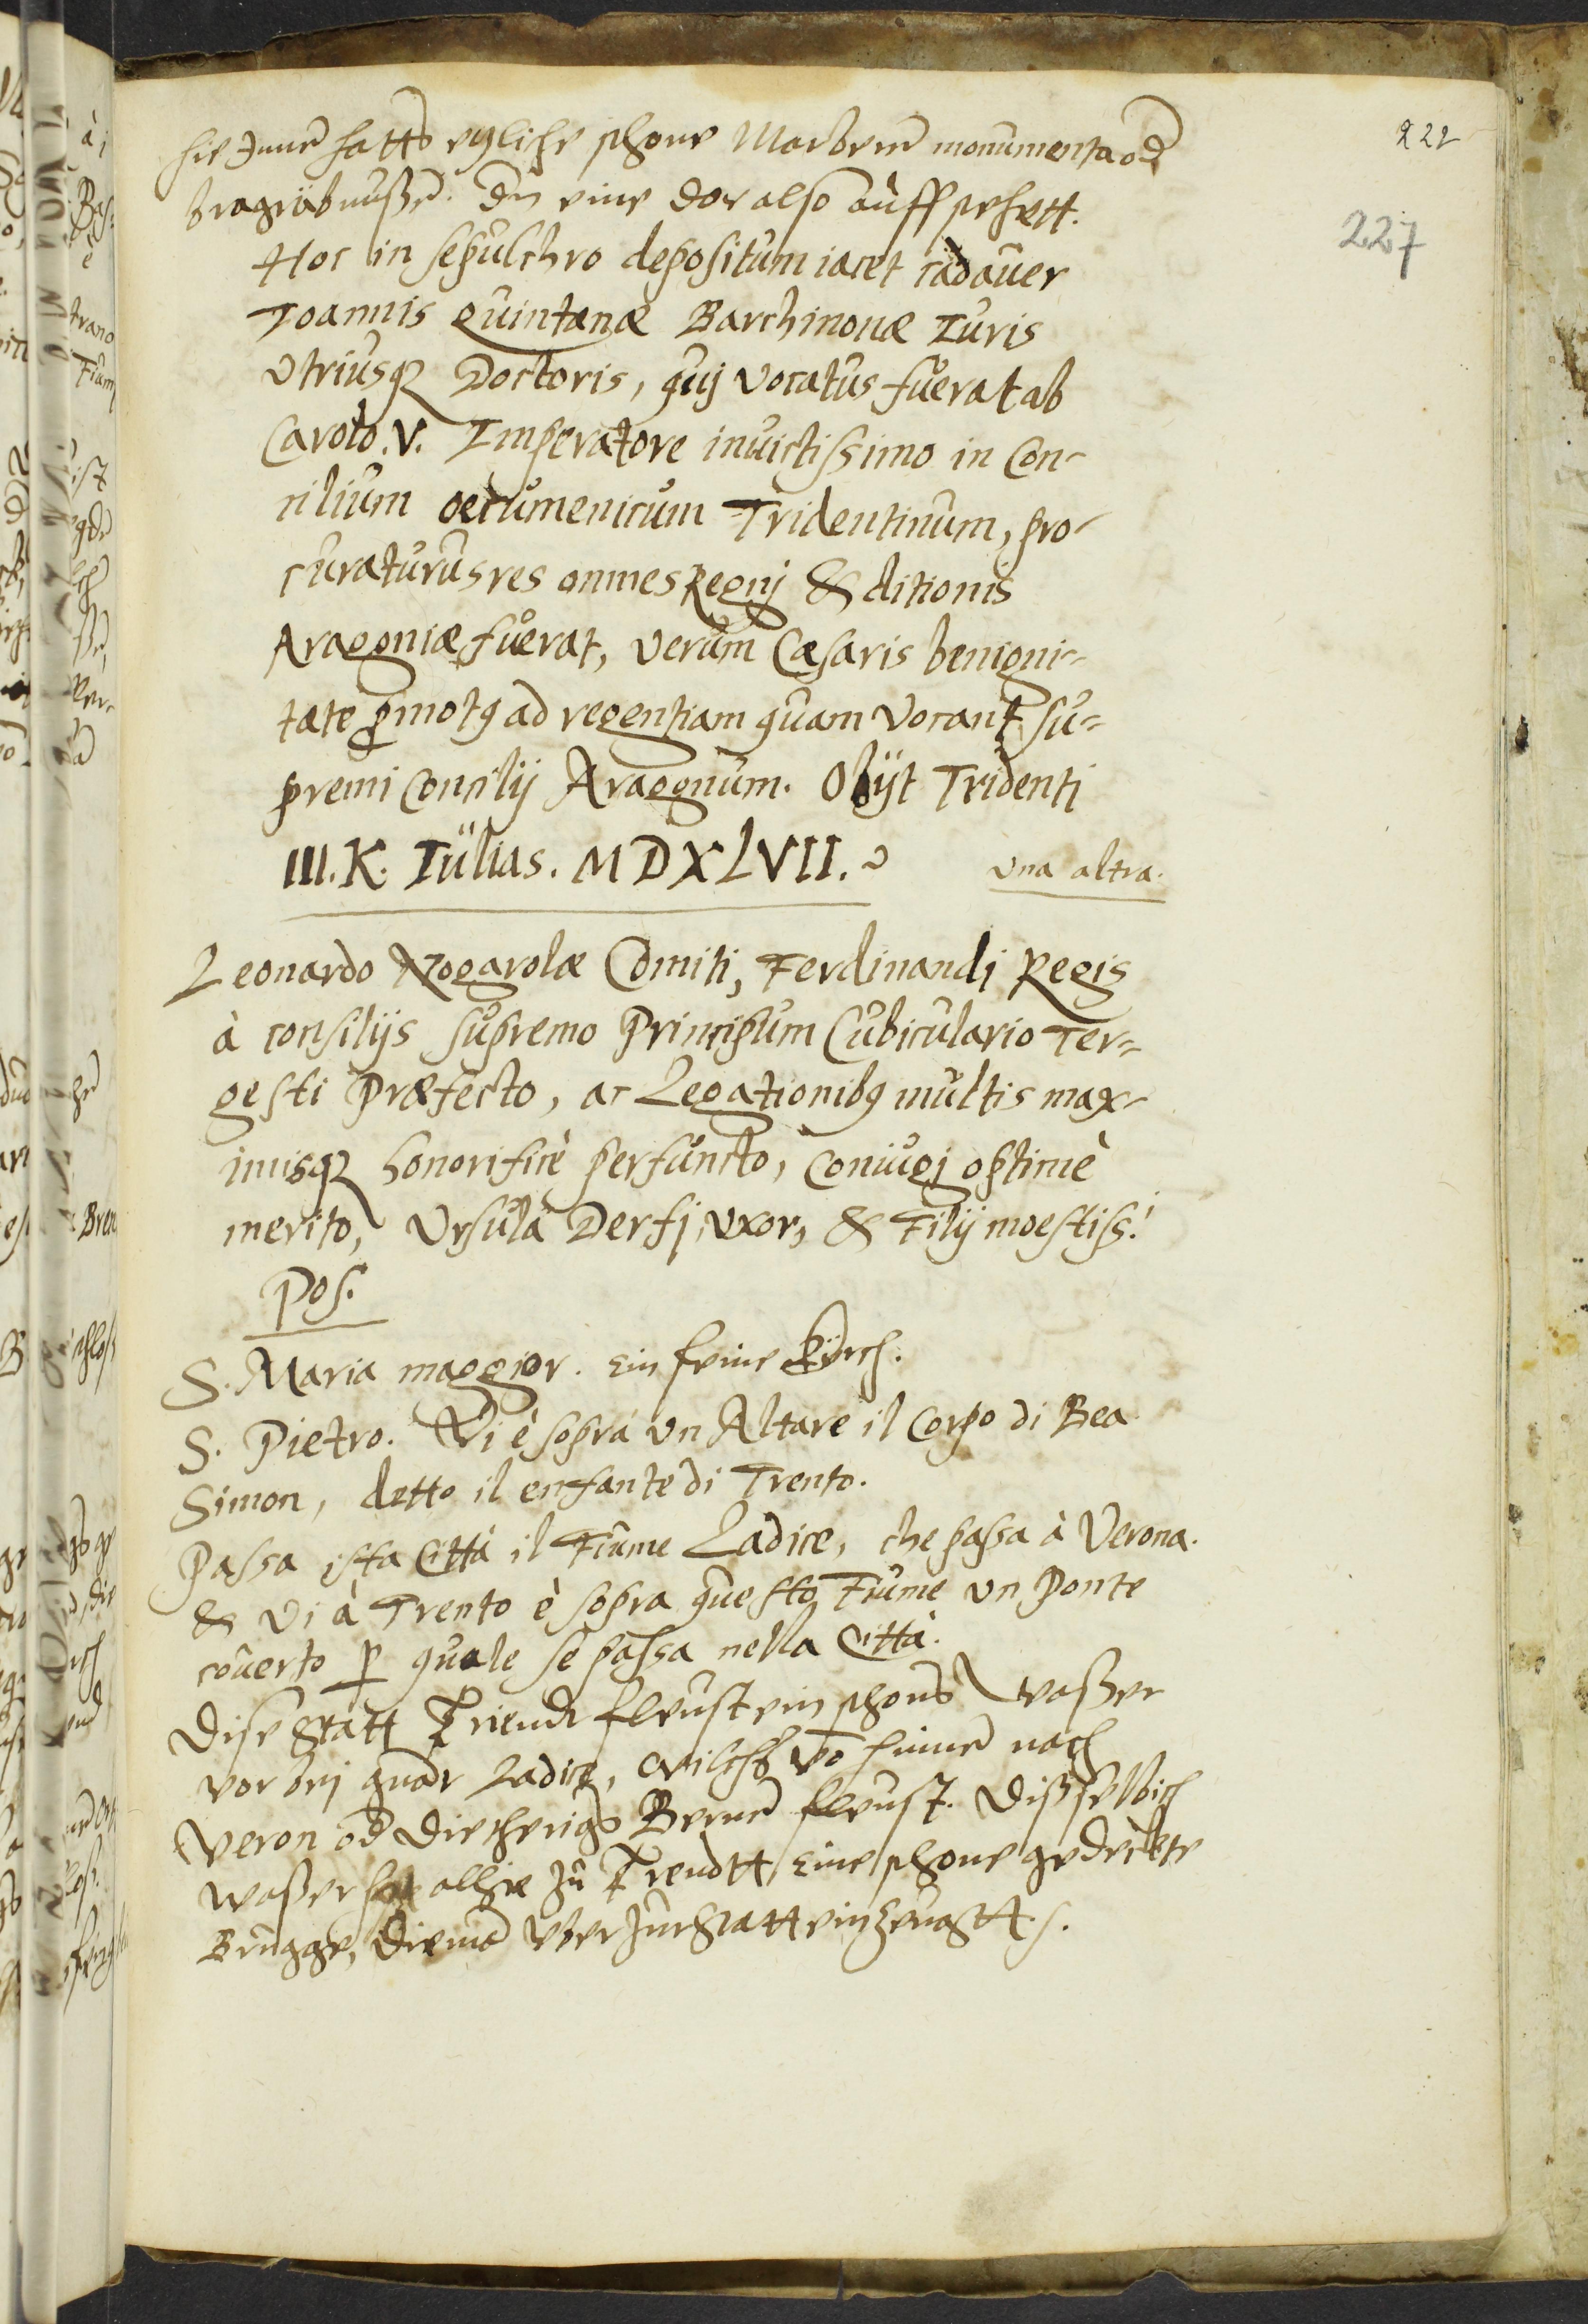 222
227
hie Jnne hatts egliche schone Marberne monumenta od
begräbnußen. Dn eine der also auff sehett.
Hoc in sepulchro depositum iacet cadauer
Ioannis Quintanæ Barchinonæ Iuris
Vtriusq Doctoris, quj vocatus fuerat ab
Carolo. V. Imperatore inuictissimo in Con-
cilium oecumenicum Tridentinum, pro-
curaturus res omnes Regnj & ditionis
Aragoniæ fuerat, verum Cæsaris benigni-
tate pmot9 ad regentiam quam vocant su-
premi Concilij Aragonum. Obijt Tridentj
III. K. Iülias. MDXLVII.
vna altra.
Leonardo Nogarolæ Comiti, Ferdinandj Regis
à consilijs supremo Principum Cubiculario Ter-
gesti Præfecto, ac Legationib9 multis max-
imisq honorificè perfuncto, Coniugj optimè
merito, Vrsula Derfj, vxor, & Filij moestiss.i
Pos.
S. Maria maggior. Ein feine Kÿrch.
S. Pietro. Vi è sopra vn Altare il Corpo di Bea
Simon, detto il enfante di Trento.
Passa ista Città il Fiume Ladice, che passa à Verona.
& Vi à Trento è sopra questo Fiume vn Ponte
couerto p quale se passa nella Città.
Dise Statt Triendt fleust ein schons Wasser
vor bej gnadt Ladice, wilchs vo hinnen nach
Veron od Dietherigs Berne fleust. Dißselbich
wasser hat alhie zu Trendtt Eine schone gedeckte
Brugge, die man vber zur Statt ein zeugett.